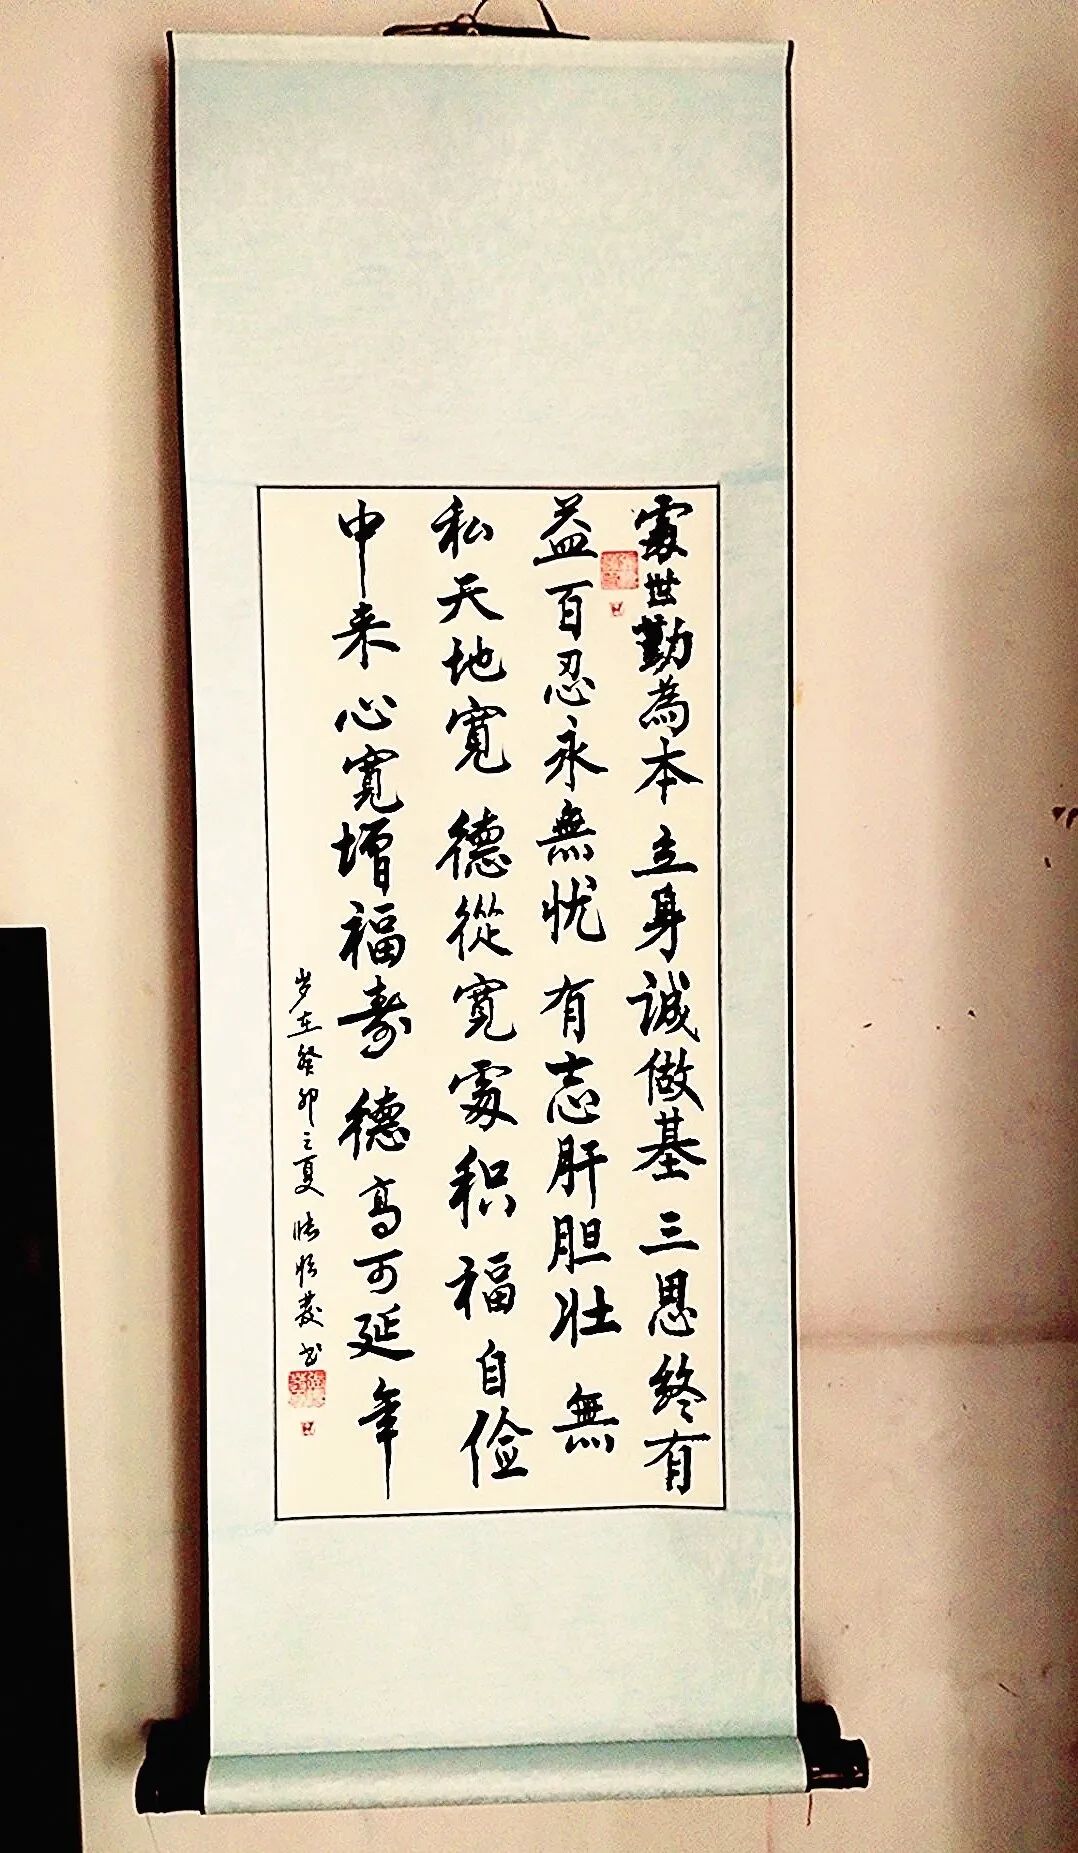 處世勤為本立身誠做基三思終有
益百忍永無忧有志肝胆壮無
私天地寬德從寬處积福自俭
中来心寬增福壽德高可延年
岁在癸卯之夏
书